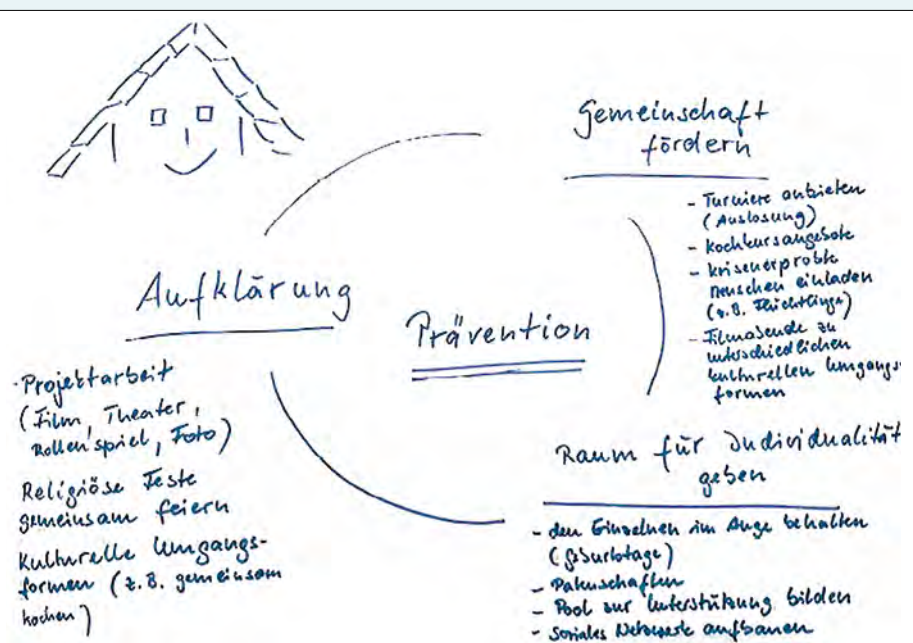 Gemeinschaft
fördern
- Turniere anbieten
(Auslosung)
- Kochkursangebote
- krisenerprobte
Menschen einladen
(z.B. Flüchtlinge)
- Filmabende zu
unterschiedlichen
kulturellen Umgangs-
formen
Aufklärung
- Projektarbeit
(Film, Theater,
Rollenspiel, Foto)
Religiöse Feste
gemeinsam feiern
Kulturelle Umgangs-
formen (z.B. gemeinsam
kochen)
Prävention
Raum für Individualität
geben
- den Einzelnen im Auge behalten
(Geburtstage)
- Patenschaften
- Pool zur Unterstützung bilden
- Soziales Netzwerk aufbauen